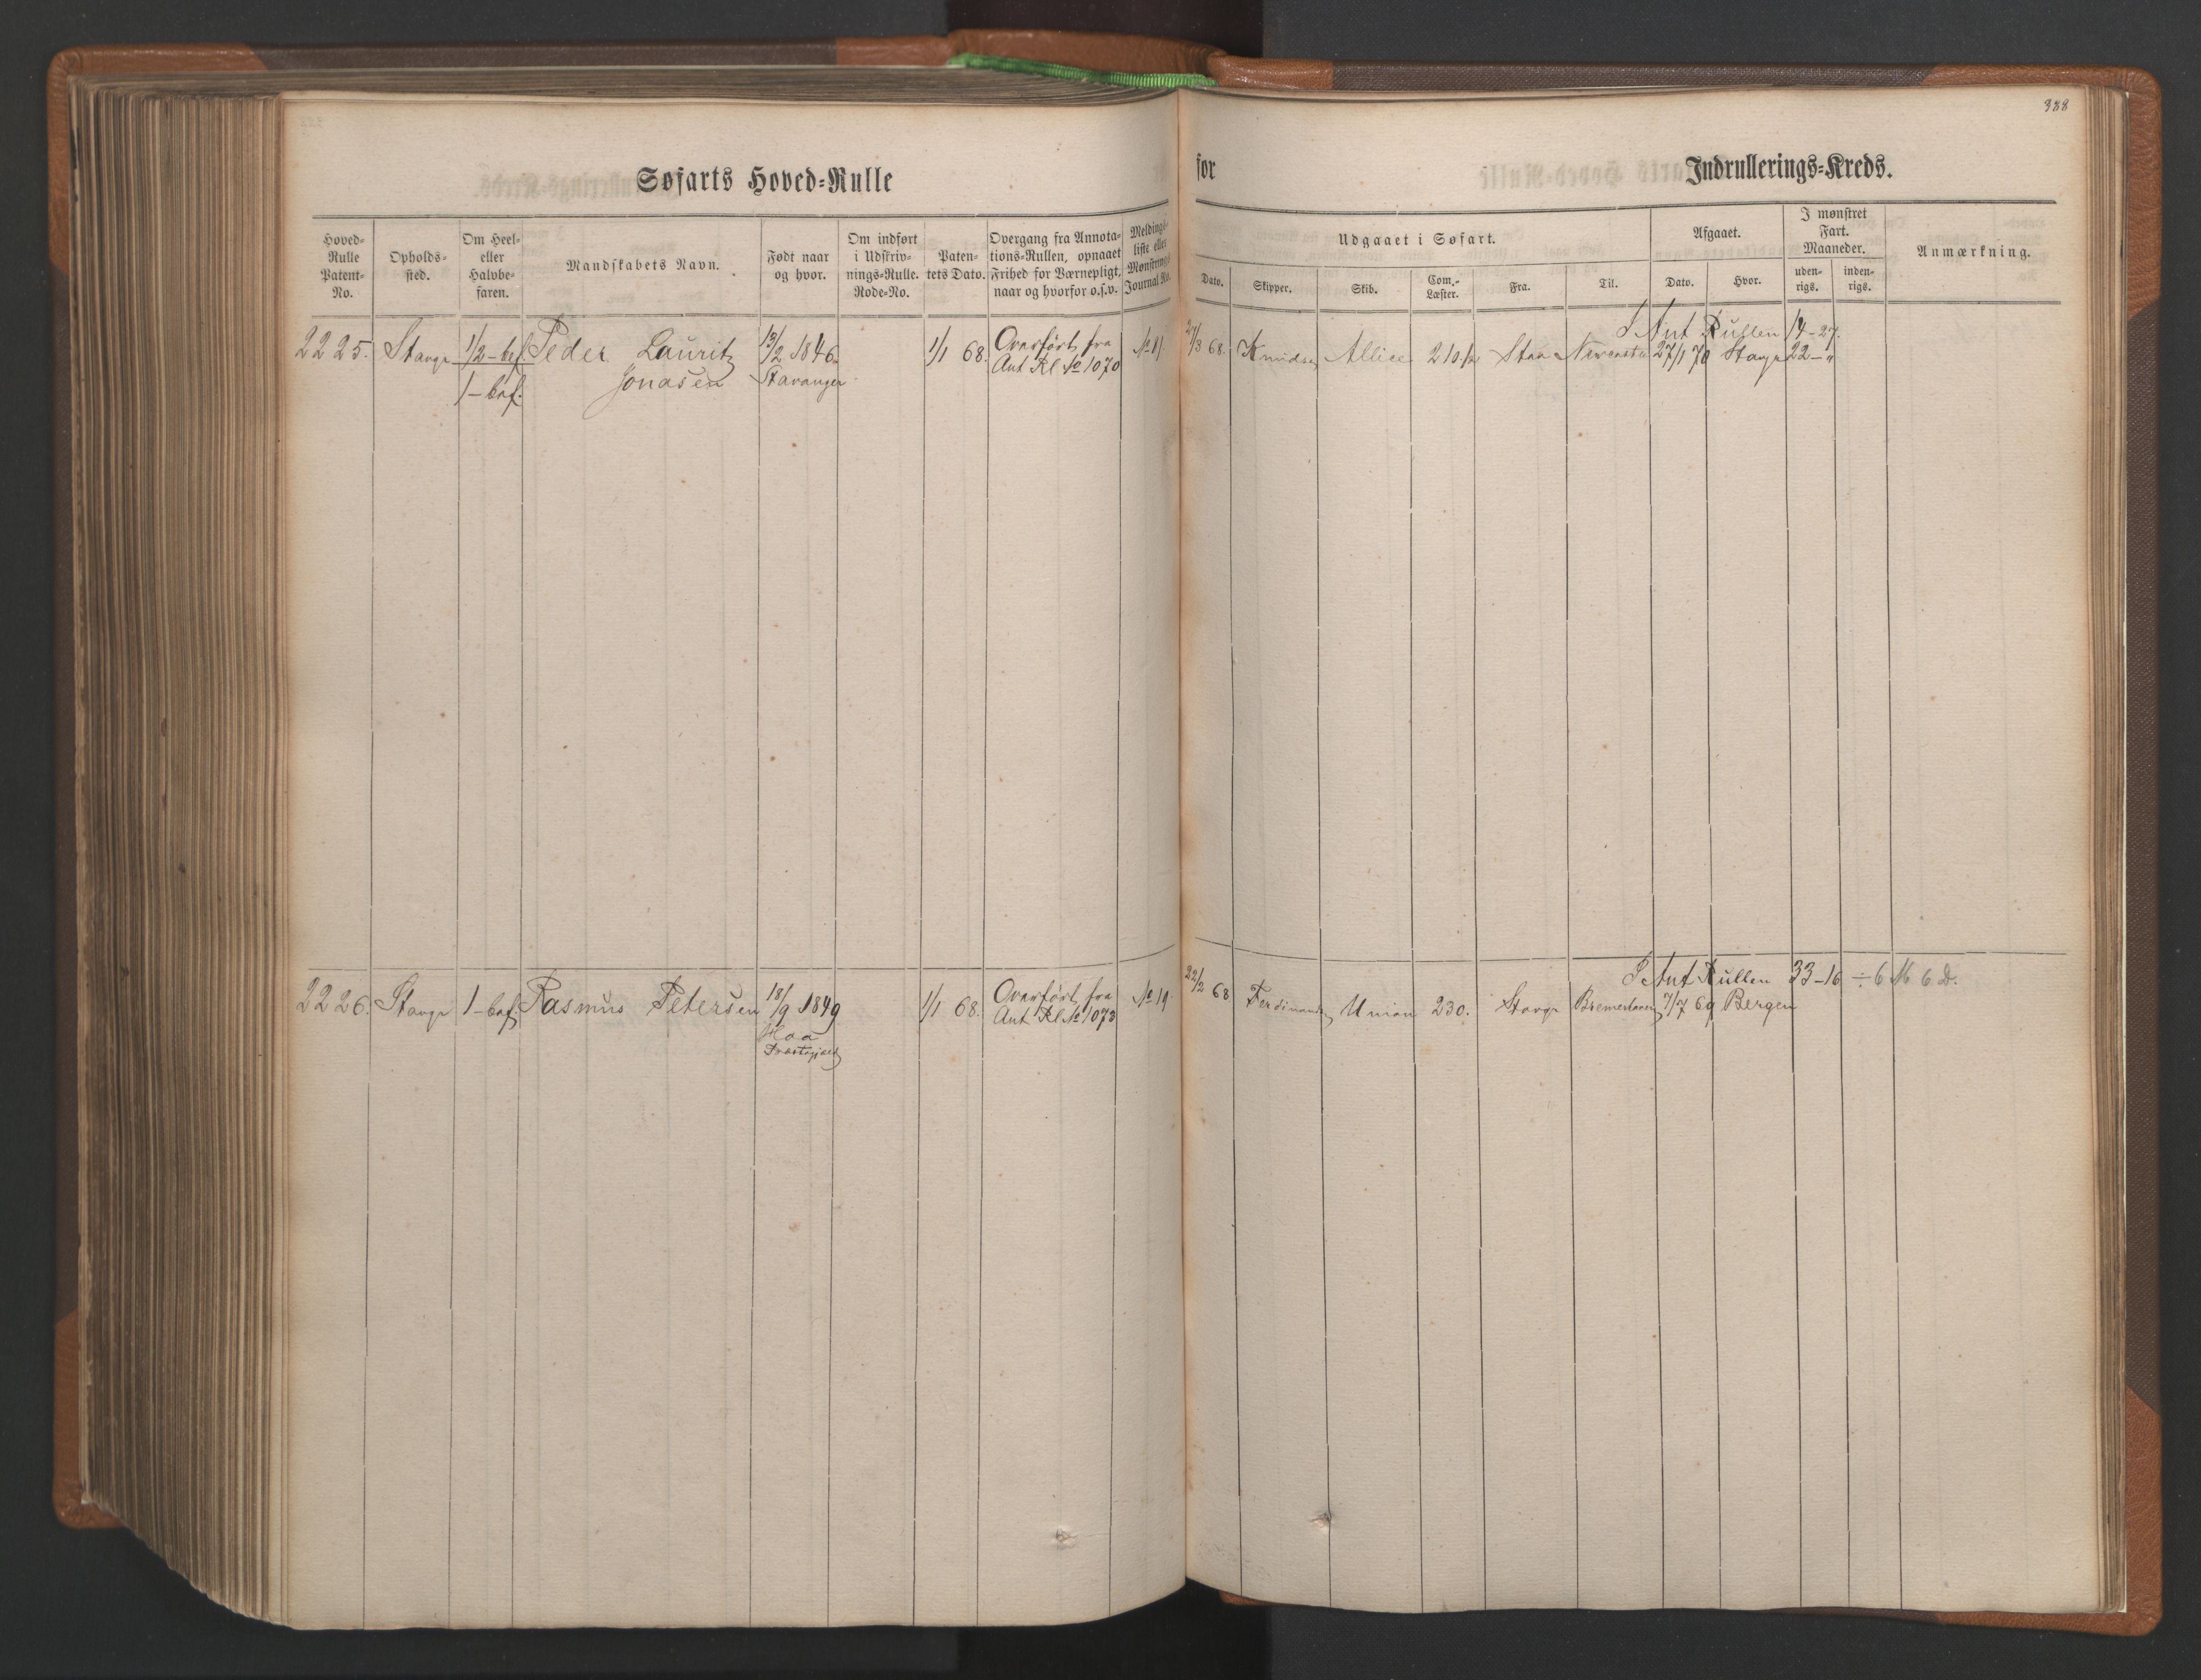 388
Søfarts Hoved-Rulle
for Indrullerings-Kreds.
Hoved-
Rulle
Patent-
No.
Opholds-
sted.
Om Heel-
eller
Halvbe-
faren.
Mandskabets Navn.
Født naar
og hvor.
Om indført
i Udskriv-
nings-Rulle.
Rode-No.
Paten-
tets Dato.
Overgang fra Annota-
tions-Rullen, opnaaet
Frihed for Værnepligt,
naar og hvorfor o.s.v.
Meldings-
liste eller
Mønstrings-
Journal No.
Udgaaet i Søfart.
Dato.
Skipper.
Skib.
Com.-
Læster.
Fra.
Til.
Afgaaet.
Dato.
Hvor.
I mønstret
Fart.
Maaneder.
uden-
rigs.
inden-
rigs.
Anmærkning.
I Ant Rullen 14-27.
2225. Stavgr 1/2-bef. Peder Lauritz 13/2 1846. 1/1 68. Overført fra No 11. 27/3 68. Knudsen Allice 210 1/2 Stav 27/1 70 Stavgr 22-"
1-bef. Jonasen Stavanger Ant Rl No 1070
I Ant Rullen 33-16 ÷ 6 M 6 D.
2226. Stavgr 1-bef. Rasmus Petersen 18/9 1849 1/1 68. Overført fra No 19 22/2 68 Ferdinand Union 230. Stavgr Bremerhaven 7/7 69 Bergen
Haa Ant Rl No 1073
Præstegield